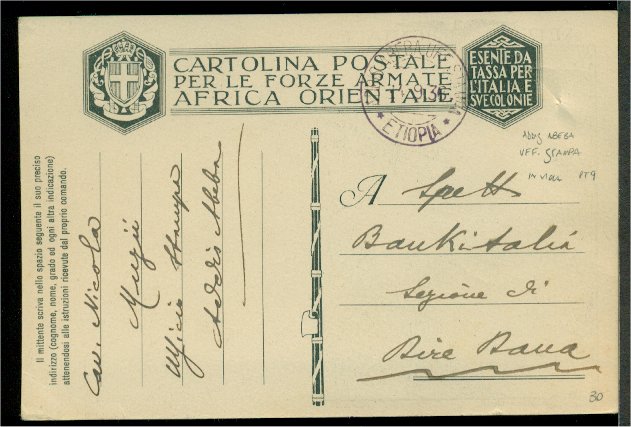 CARTOLINA POSTALE
PER LE FORZE ARMATE
AFRICA ORIENTALE
ESENTE DA
TASSA PER
L'ITALIA E
SVE COLONIE
* ETIOPIA *
ADDIS ABEBA
UFF. STAMPA
IN VIOLA PT9
Il mittente scriva nello spazio seguente il suo preciso
indirizzo (cognome, nome, grado ed ogni altra indicazione)
attenendosi alle istruzioni ricevute dal proprio comando.
Cav. Nicola
Muzii
Ufficio Stampa
Addis Abeba
A Spett
Bankitalia
Sezione di
Dire Daua
30